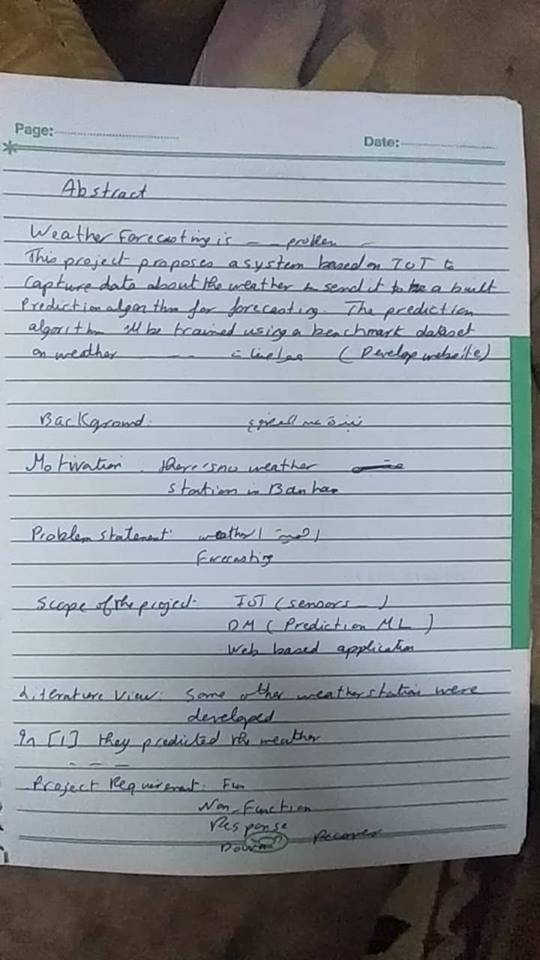 Page:
Date:
Abstract
Weather Forecasting is _ _ problem _
This project proposes a system based on IOT to
capture data about the weather & send it to be a built
Prediction algorithm for forecasting. The prediction
algorithm 'll be trained using a benchmark dataset
on weather _ _ _ (Develop website)
Background: نبذة عن المشروع
Motivation. there's no weather
station in Banha
Problem statement: weather
Forecasting
Scope of the project: IOT (sensors _ )
DM ( Prediction ML )
Web based application
Literature View: Some other weather station were
developed
In [1] they predicted the weather
_ _ _
Project Requirement: Fun
Non_Function
Response
Recover